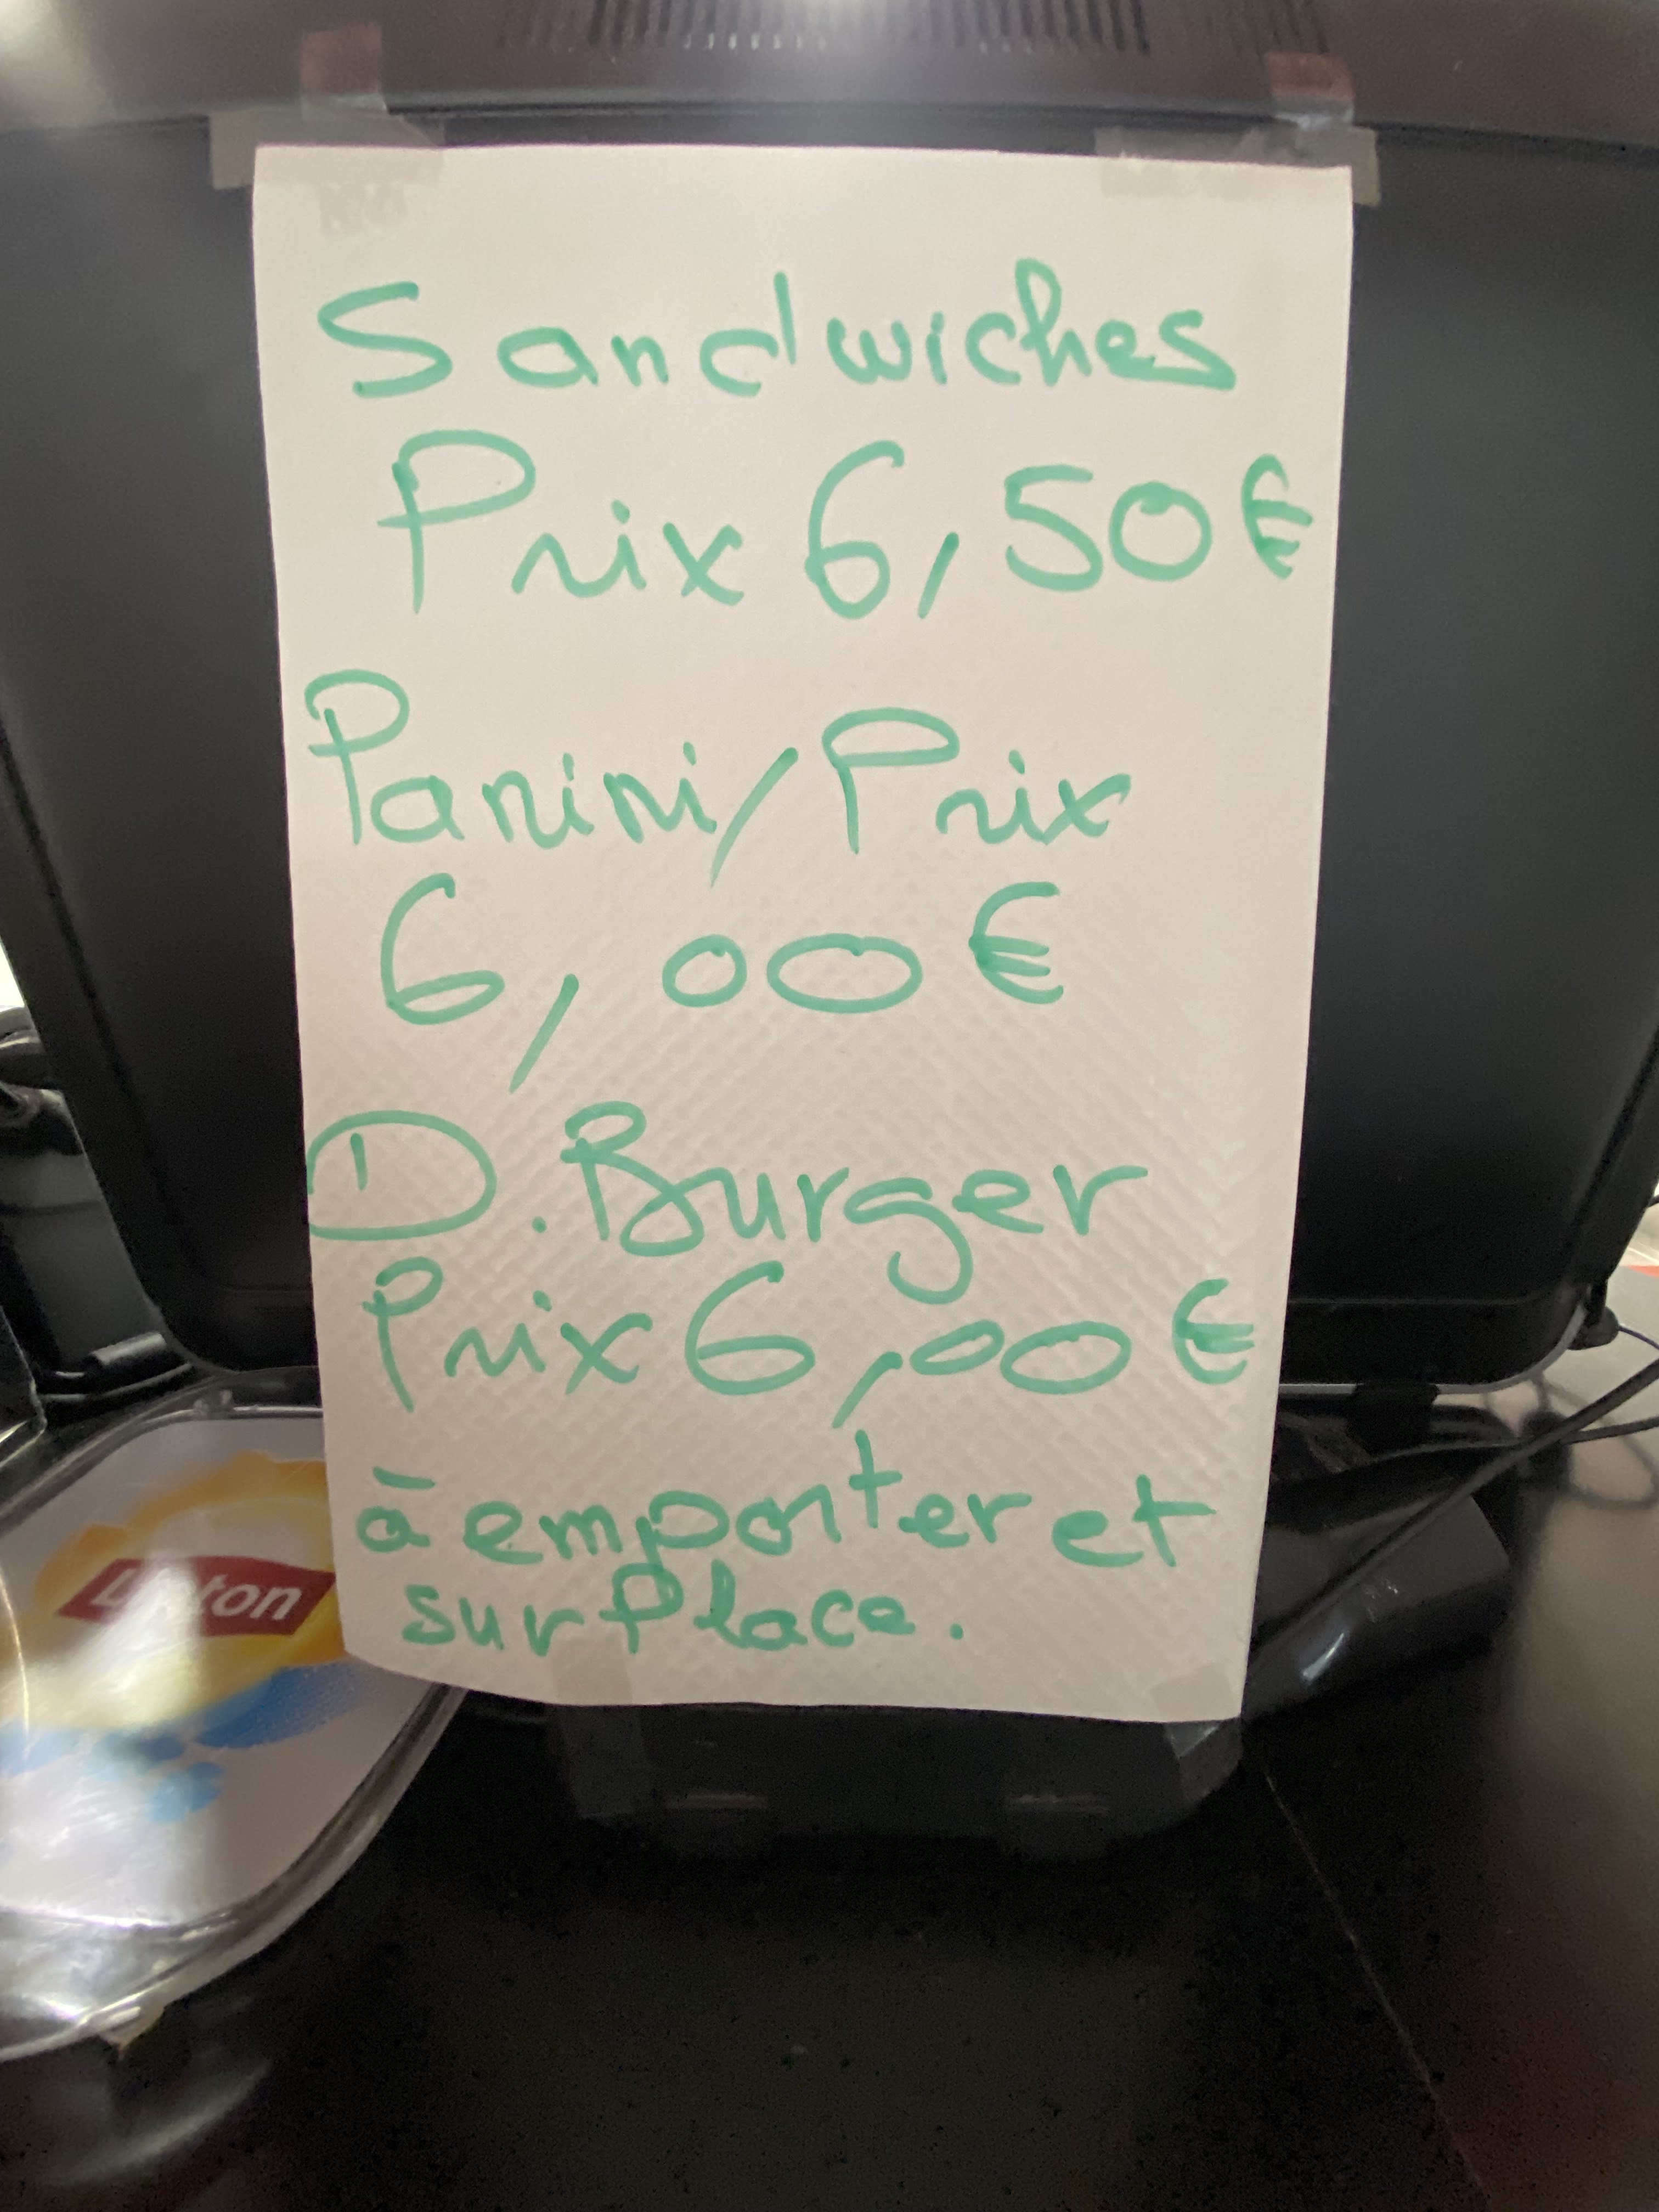 Sandwiches
Prix 6,50€
Panini/Prix
6,00€
D.Burger
Prix 6,00€
à emporter et
sur Place.
Lipton